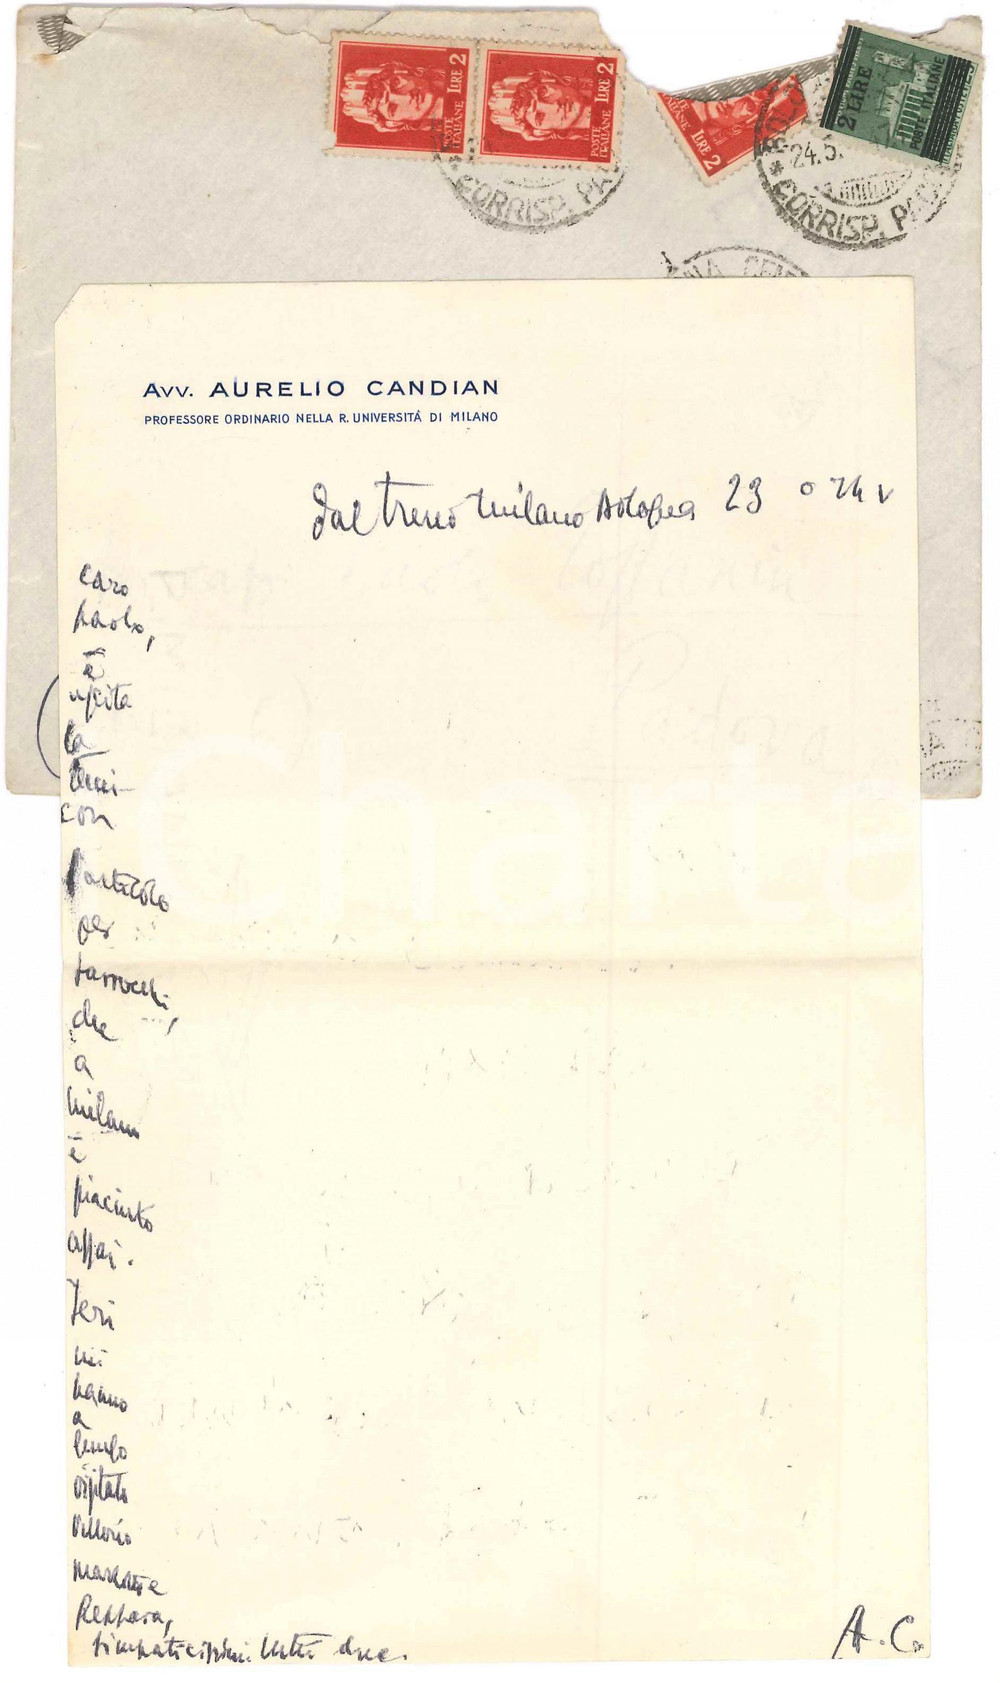 LIRE 2
POSTE ITALIANE
LIRE 2
POSTE ITALIANE
LIRE 2
2 LIRE
POSTE ITALIANE
24.5.
CORRISP. PA
CORRISP. PAC
AVV. AURELIO CANDIAN
PROFESSORE ORDINARIO NELLA R. UNIVERSITÁ DI MILANO
dal treno Milano Bologna 23 o 24 V
caro
Paolo,
è
uscita
la
Temi
con
l'articolo
per
Tarrocchi,
che
a
Milano
è
piaciuto
assai.
Ieri
mi
hanno
a
lungo
visitato
Vittorio
e
simpaticissimi tutti due.
A. C.
Charta